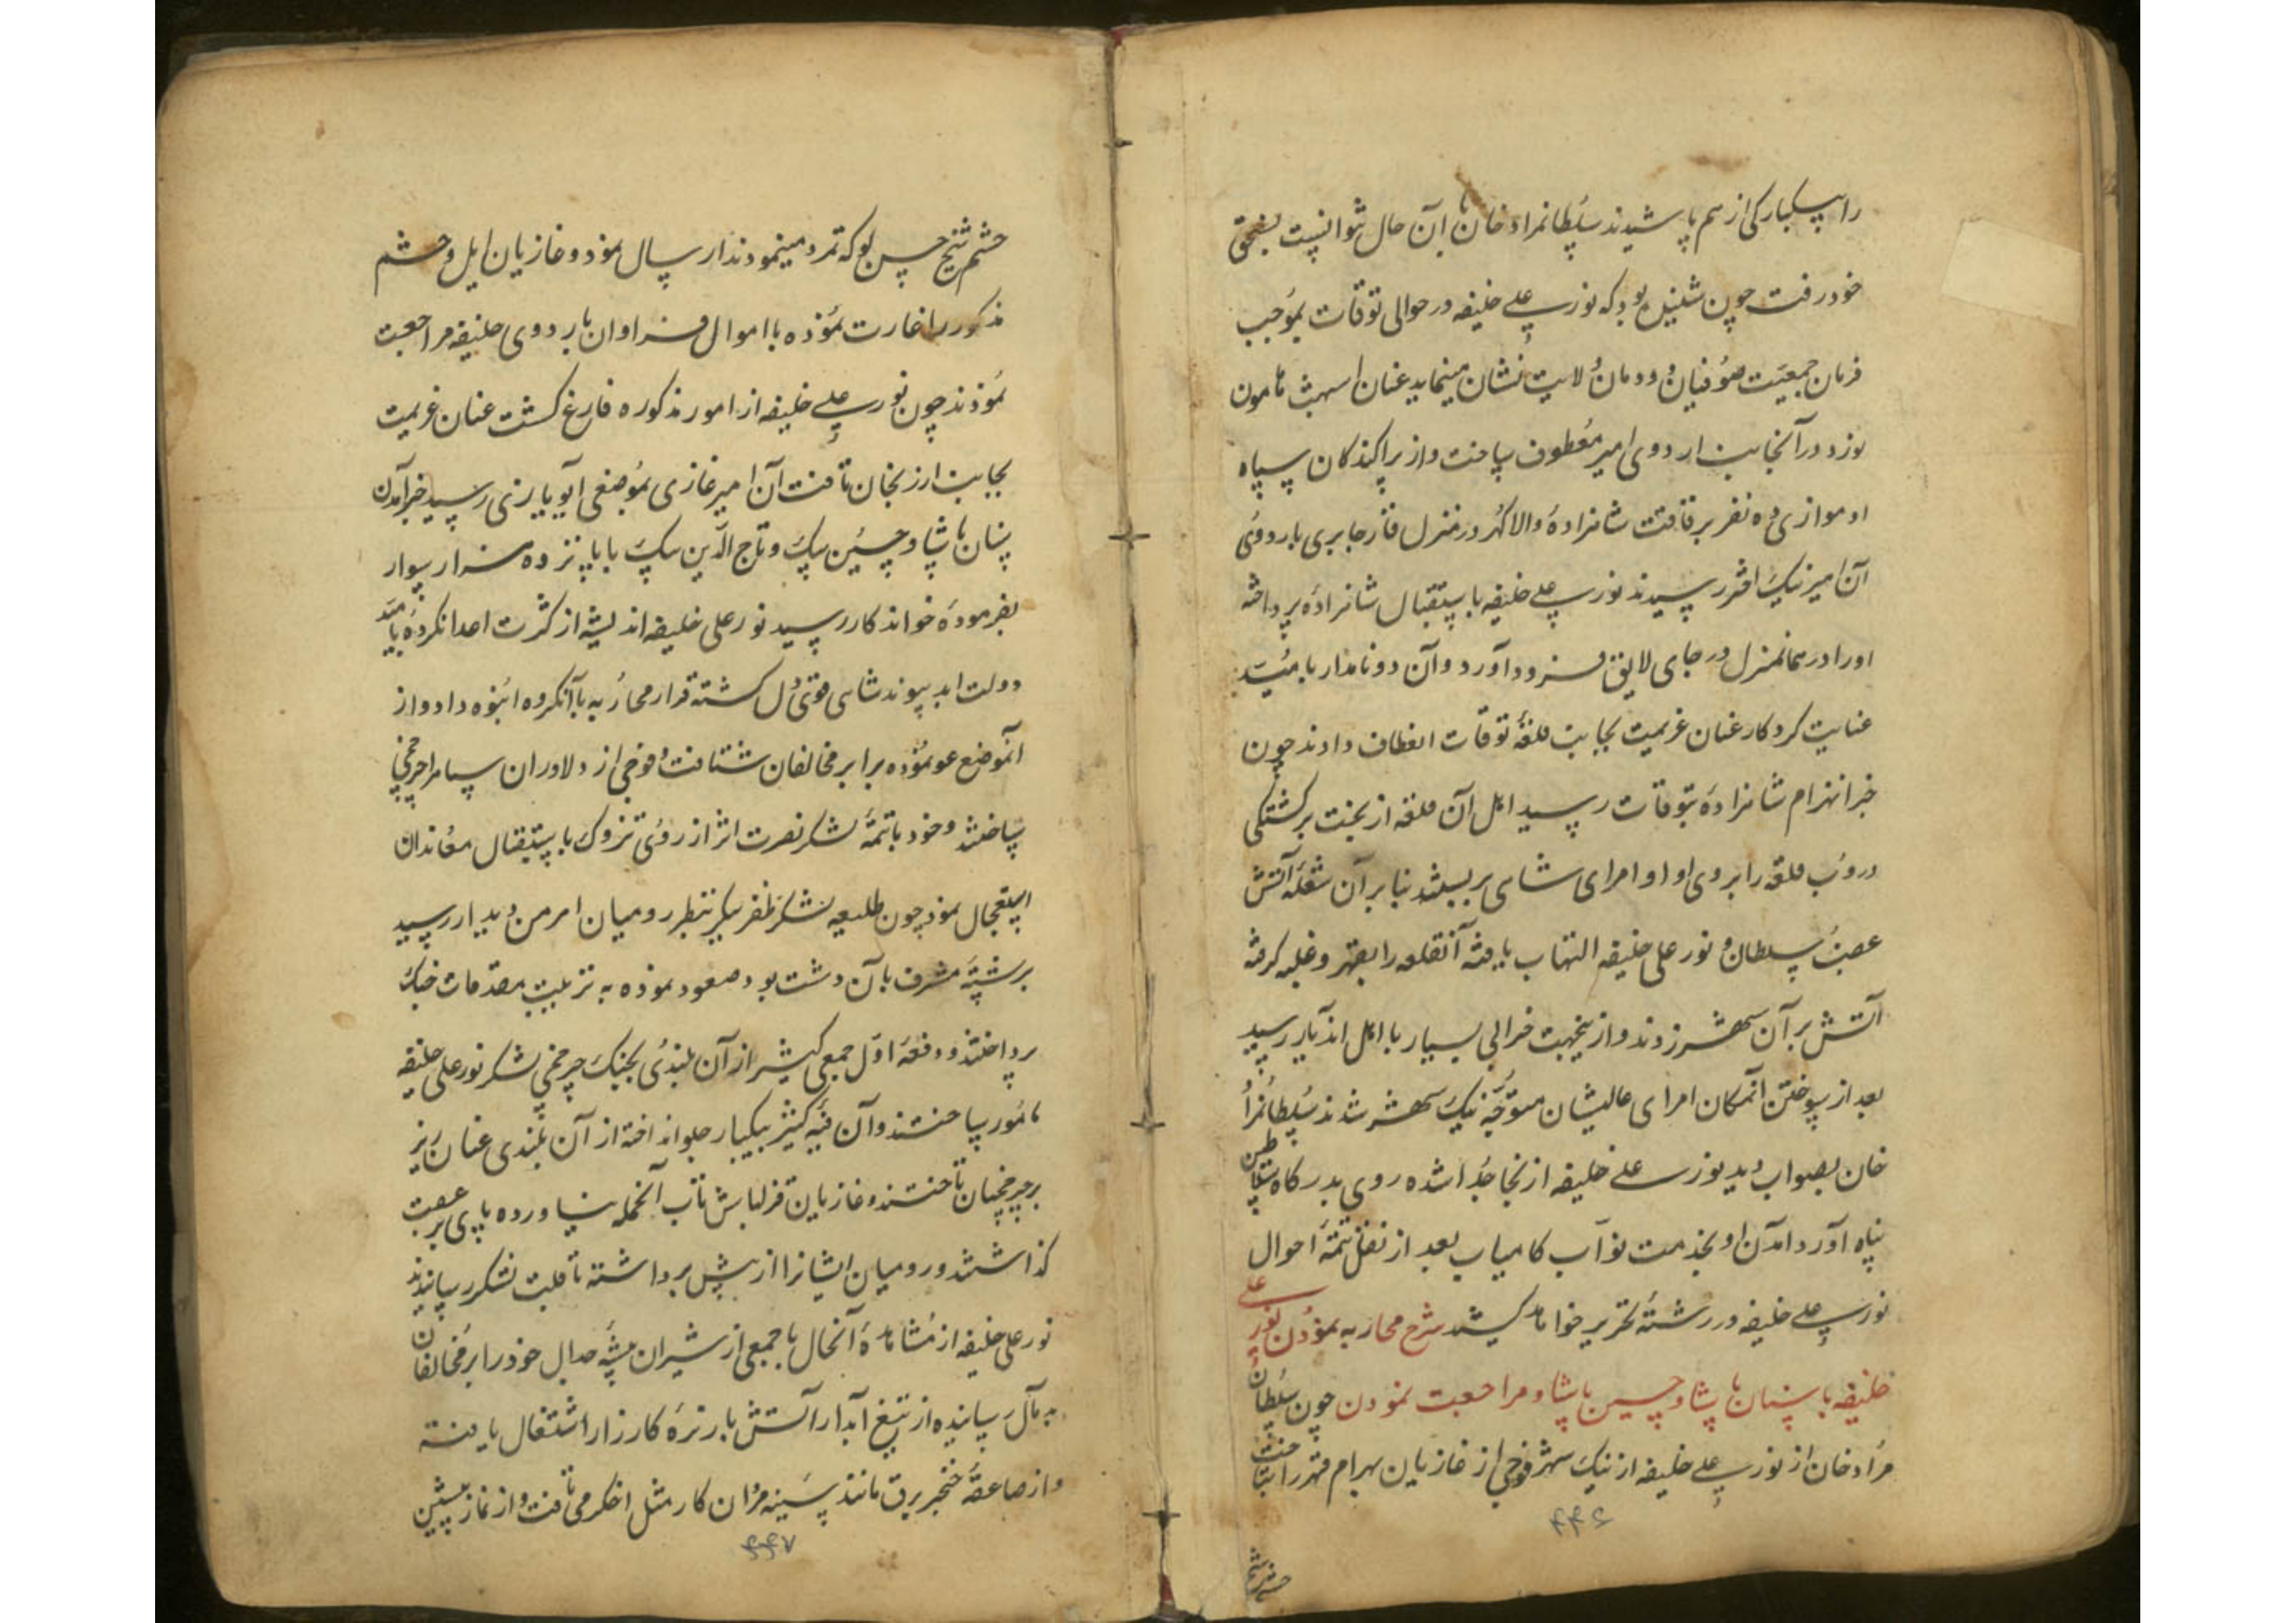 را بیکبارکی از هم پاشیدند سلطانمراد خان با آن حال نتوانست بفتحی
خود رفت چون شنیده بود که نور علی خلیفه در حوالی توقات بموجب
فرمان جمعیت صوفیان دودمان ولایت نشان مینماید عنان اسهب هامون
نورد در آنجانب اردوی امیر معطوف ساخت و از پراکندکان سپاه
او موازی ده نفر برفاقت شاهزادهٔ والا کهر در منزل قاز جابری باردوی
آن امیر نیک اختر رسیدند نور علی خلیفه باستقبال شاهزاده پرداخته
او را در همانمنزل در جای لایق فرود آورد و آن دو نامدار بامید
عنایت کردکار عنان عزیمت بجانب قلعهٔ توقات انعطاف دادند چون
خبر انهزام شاهزاده بتوقات رسید اهل آن قلعه از بخت برکشتکی
دروب قلعه را بروی او و امرای شاهی بربستند بنابر آن شعلهٔ آتش
غضب سلطان و نور علی خلیفه التهاب یافته آنقلعه را بقهر و غلبه کرفته
آتش بر آن شهر زدند و از ینجهت خرابی بسیار با اهل اندیار رسید
بعد از سوختن آنمکان امرای عالیشان متوجه نیک شهر شدند سلطانمراد
خان بصواب دید نور علی خلیفه از آنجا جدا شده روی بدرکاه سلاطین
پناه آورد آمدن او بخدمت نواب کامیاب بعد از نقل تتمهٔ احوال
نور علی خلیفه در رشتهٔ تحریر خواهد کشید شرح محاربه نمودن نور علی
خلیفه با سنان پاشا و حسین پاشا و مراجعت نمودن چون سلطان
مراد خان از نور علی خلیفه از نیک شهر فوجی از غازیان بهرام قهر را بتاخت
۴۴۶
حشم شیخ
حشم شیخ حسن لو که تمرد مینمودند ارسال نمود و غازیان ایل و حشم
مذکور را غارت نموده با اموال فراوان باردوی خلیفه مراجعت
نمودند چون نور علی خلیفه از امور مذکوره فارغ کشت عنان عزیمت
بجانب ارزنجان تافت آن امیر غازی بموضعی رسید خبر آمدن
سنان پاشا و حسین بیک و تاج الدین بیک با پانزده هزار سوار
بفرمودهٔ خواندکار رسید نور علی خلیفه اندیشه از کثرت اعدا نکرده بامید
دولت ابد پیوند شاهی قوی دل کشته قرار محاربه با آنکروه انبوه داد و از
آنموضع عود نموده برابر مخالفان شتافت و فوجی از دلاوران سپاه را چرخچی
ساختند و خود با تتمهٔ لشکر نصرت اثر از روی تزوک باستقبال معاندان
استعجال نمود چون طلیعه لشکر ظفر پیکر بنظر رومیان اهرمن دیدار رسید
بر پشتهٔ مشرف بآن دشت بود صعود نموده به ترتیب مقدمات جنک
پرداختند و دفعهٔ اول جمعی کثیر از آن بلندی بجنک چرخچی لشکر نور علی خلیفه
مامور ساختند و آن فئهٔ کثیر بیکبار جلو انداخته از آن بلندی عنان ریز
بر چرخچیان تاختند و غازیان قزلباش تاب آنحمله نیاورده پای بر عصبت
کذاشتند و رومیان ایشانرا از پیش برداشته تا قلب لشکر رسانیدند
نور علی خلیفه از مشاهدهٔ آنحال با جمعی از شیران بیشهٔ جدال خود را بر مخالفان
بدمآل رسانیده از تیغ آبدار آتش بار تره کارزار اشتعال یافته
و از صاعقهٔ خنجر برق مانند سینه مردان کار مثل اخکر می تافت و از نماز پیشین
۴۴۷